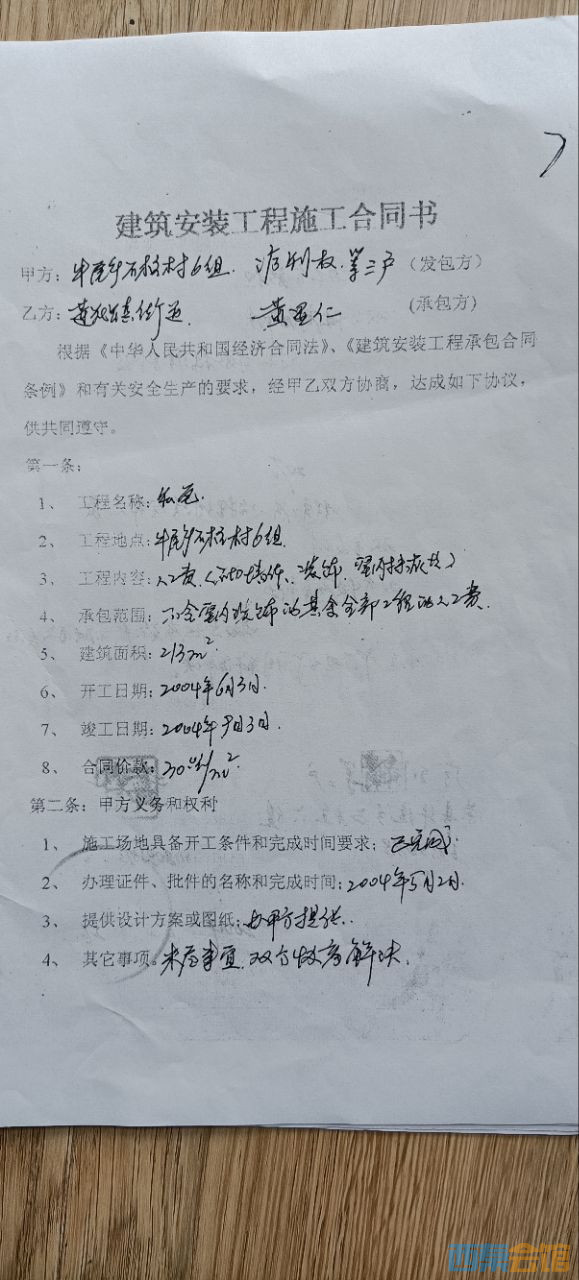 建筑安装工程施工合同书
甲方：牛尾乡石柱村6组. 第三户（发包方）
乙方：街 黄 仁 (承包方)
根据《中华人民共和国经济合同法》、《建筑安装工程承包合同
条例》和有关安全生产的要求，经甲乙双方协商，达成如下协议，
供共同遵守。
第一条：
1、 工程名称：私宅.
2、 工程地点：牛尾乡石柱村6组.
3、 工程内容：人工费（
4、 承包范围：不含室内装饰的其余全部工程的人工费.
5、 建筑面积：213m².
6、 开工日期：2004年6月3日.
7、 竣工日期：2004年9月3日.
8、 合同价款：/m².
第二条：甲方义务和权利
1、 施工场地具备开工条件和完成时间要求；已完成.
2、 办理证件、批件的名称和完成时间：2004年5月2日.
3、 提供设计方案或图纸：由甲方提供.
4、 其它事项。未尽事宜.双方协商解决.
西祠会馆